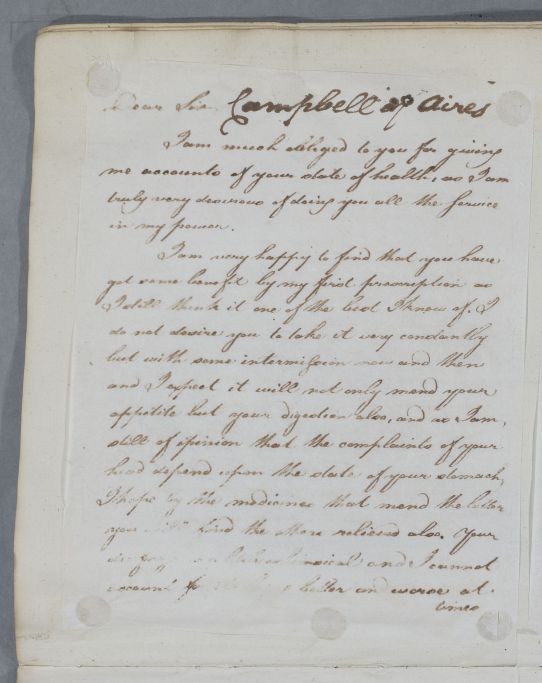 Dear Sir Campbell of Aires
I am much obliged to you for giving
me accounts of your state of health, as I am
truly very desirous of doing you all the Service
in my power.
I am very happy to find that you have
got some benefit by my first prescription as
I still think it one of the best I know of. I
do not desire you to take it very constantly
but with some intermission now and then
and I expect it will not only mend your
appetite but your digestion also, and as I am,
still of opinion that the complaints of your
head depend upon the state of your stomach,
I hope by the medicines that mend the latter
you will find the other relieved also. Your
and I cannot
account for better and worse at
times